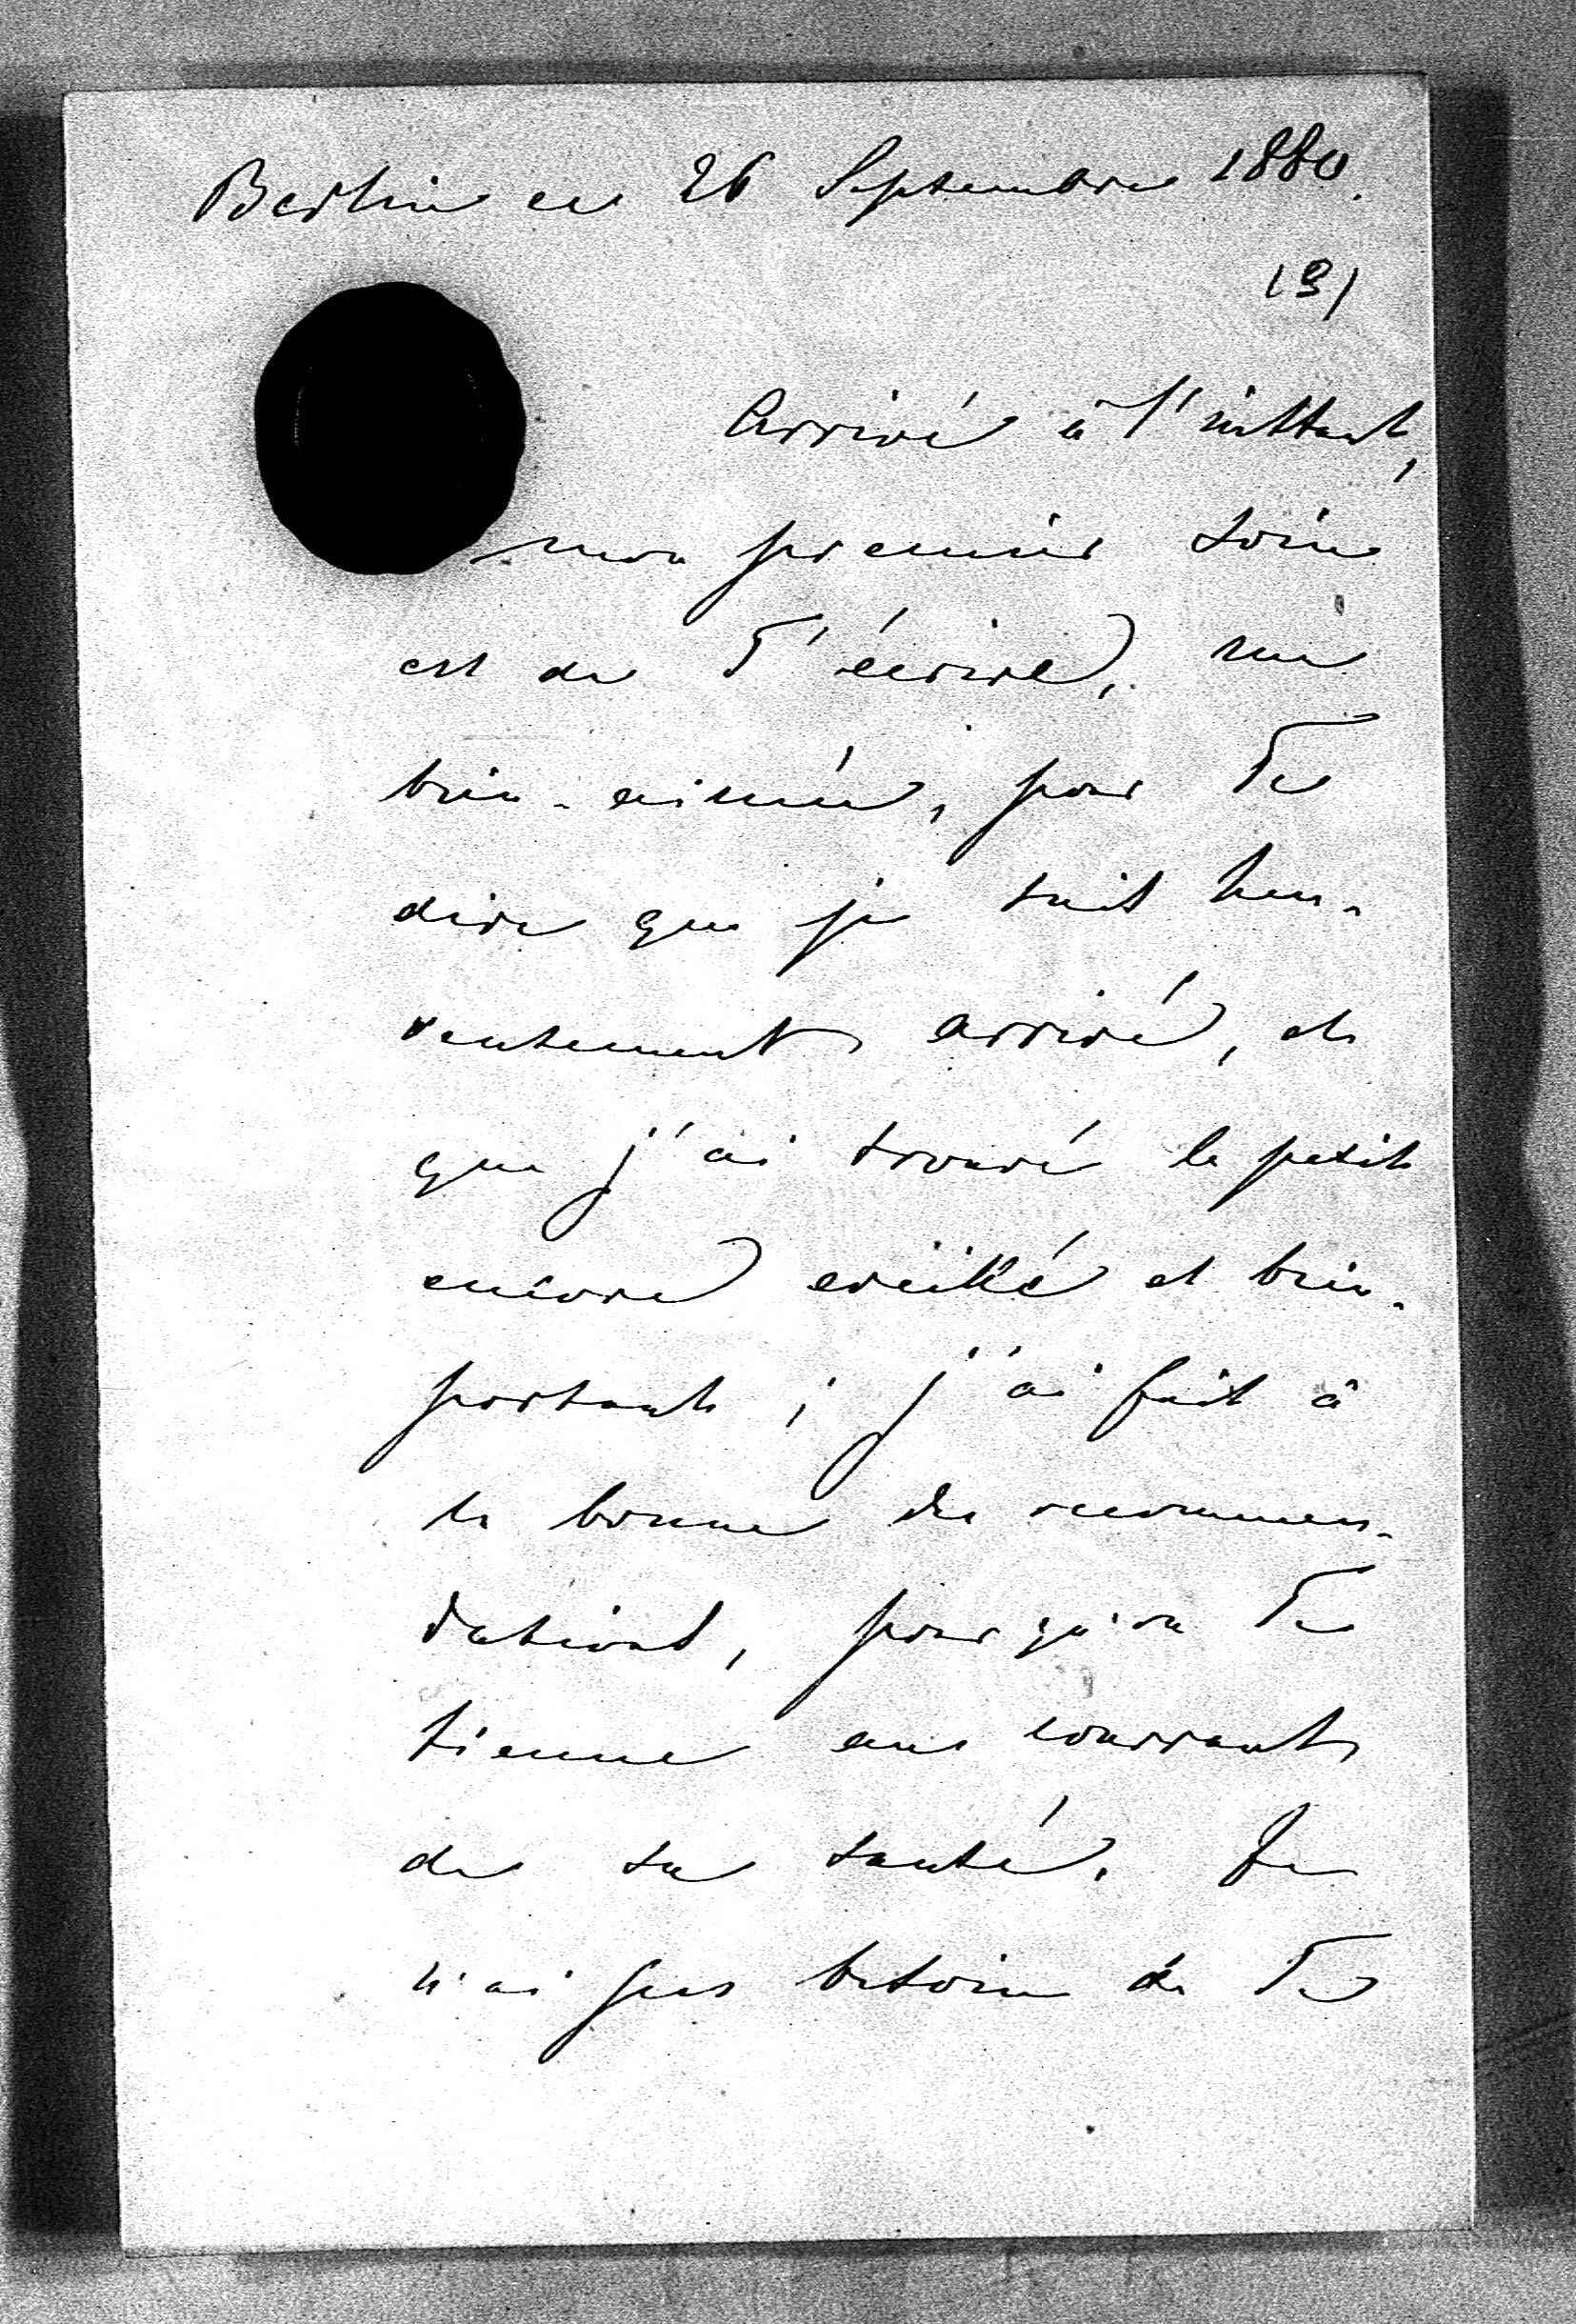 Berlin ce 26 Septembre 1880.
(3)
Arrivé à l'instant,
mon premier soin
est de T'écrire, ma
bien-aimée, pour Te
dire que je suis heu-
reusement arrivé, et
que j'ai trouvé le petit
encore éveillé et bien-
portant ; j'ai fait à
la bonne des recommen-
dations, pour qu'on Te
tienne au courrant
de sa santé. Je
n'ai pas besoin de Te